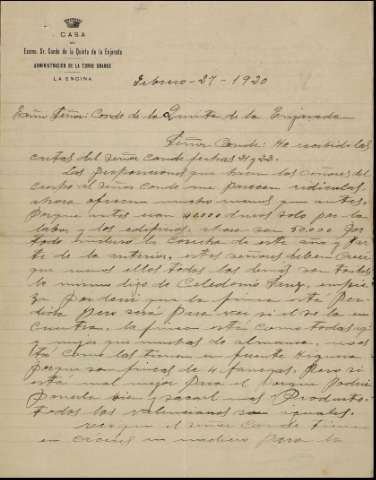 CASA
DEL
Excmo. Sr. Conde de la Quinta de la Enjarada
ADMINISTRACIÓN DE LA TORRE GRANDE
LA ENCINA
Febrero-27-1920
Exmo Señor: Conde de la Quinta de la Enjarada
Señor Conde: He recibido las
cartas del señor conde fechas 21 y 23.
Las proposiciones que hacen los señores del
al señor conde me parecen ridiculas
ahora ofrecen mucho menos que antes.
Porque antes eran 40000 duros solo por la
labor y los edificios, ahora son 50000 por
todo incluso la cosecha de este año y par
te de la anterior, estos señores deben creer
que menos ellos todos los demás son tontos
lo mismo digo de Celedonio
que la finca esta per
dida pero será para ver si el se la en
cuentra. la finca está como todas
y mejor que muchas de almansa, no es
tá como las tienen en fuente Higuera
porque son fincas de 4 fanegas. Pero si
está mal mejor para el porque podrá
ponerla bien y sacarle mas Producto.
todos los valencianos son iguales.
el señor Conde tienen
en un madero para la